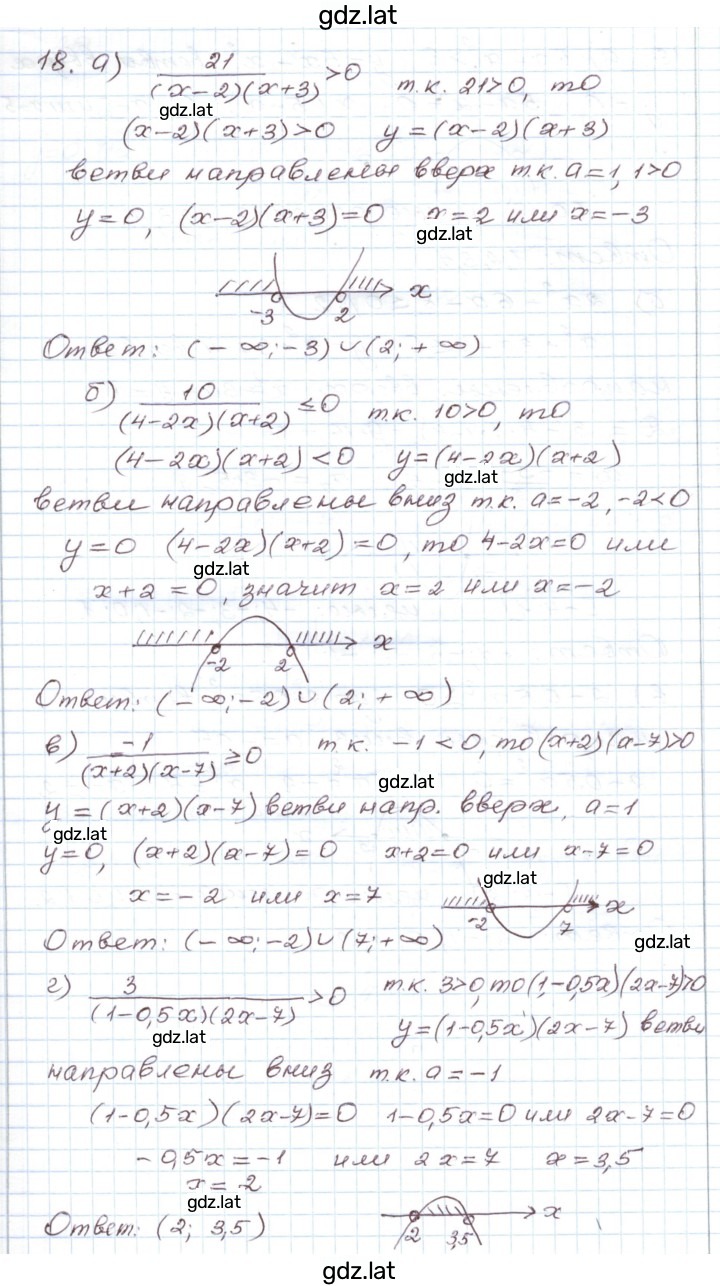 gdz.lat
18. а) 21/((x-2)(x+3)) >0 т.к. 21>0, то
gdz.lat
(x-2)(x+3)>0 y=(x-2)(x+3)
ветви направлены вверх т.к. a=1, 1>0
y=0, (x-2)(x+3)=0 x=2 или x=-3
gdz.lat
-3 2 x
Ответ: (-∞;-3)∪(2;+∞)
б) 10/((4-2x)(x+2)) ≤0 т.к. 10>0, то
(4-2x)(x+2)<0 y=(4-2x)(x+2)
gdz.lat
ветви направлены вниз т.к. a=-2, -2<0
y=0 (4-2x)(x+2)=0, то 4-2x=0 или
gdz.lat
x+2=0, значит x=2 или x=-2
-2 2 x
Ответ: (-∞;-2)∪(2;+∞)
в) -1/((x+2)(x-7)) ≥0 т.к. -1<0, то (x+2)(x-7)>0
gdz.lat
y=(x+2)(x-7) ветви напр. вверх, a=1
gdz.lat
y=0, (x+2)(x-7)=0 x+2=0 или x-7=0
gdz.lat
x=-2 или x=7
-2 7 x
Ответ: (-∞;-2)∪(7;+∞)
gdz.lat
г) 3/((1-0,5x)(2x-7)) >0 т.к. 3>0, то (1-0,5x)(2x-7)>0
gdz.lat
y=(1-0,5x)(2x-7) ветви
направлены вниз т.к. a=-1
(1-0,5x)(2x-7)=0 1-0,5x=0 или 2x-7=0
-0,5x=-1 или 2x=7 x=3,5
x=2
gdz.lat
Ответ: (2; 3,5)
2 3,5 x
gdz.lat